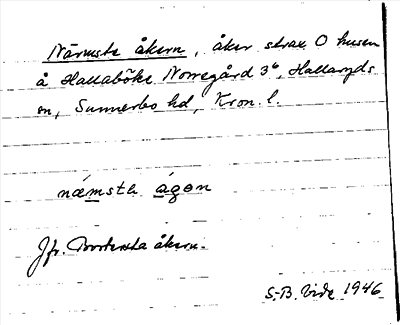 Närmste åkern, åker strax O husen
å Hallaböke Norregård 3⁶, Hallaryds
sn, Sunnerbo hd, Kron. l.
næmste ágen
Jfr. Bortersta åkern.
S-B. Vide 1946